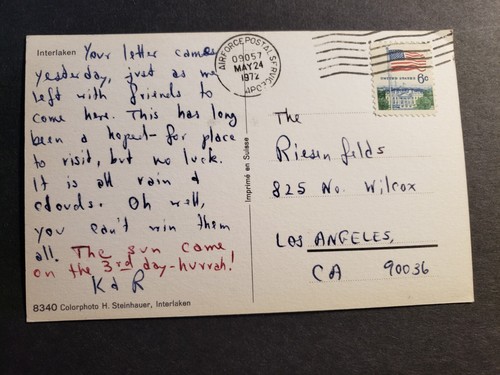 Interlaken
Your letter came
yesterday, just as we
left with friends to
come here. This has long
been a hoped-for place
to visit, but no luck.
It is all rain &
clouds. Oh well,
you can't win them
all. The sun came
on the 3rd day-hurrah!
K & R
8340 Colorphoto H. Steinhauer, Interlaken
Imprimé en Suisse
AIR FORCE POSTAL SERVICE
09057
MAY 24
1972
APO
6c
The
Riesenfelds
825 No. Wilcox
LOS ANGELES,
CA 90036